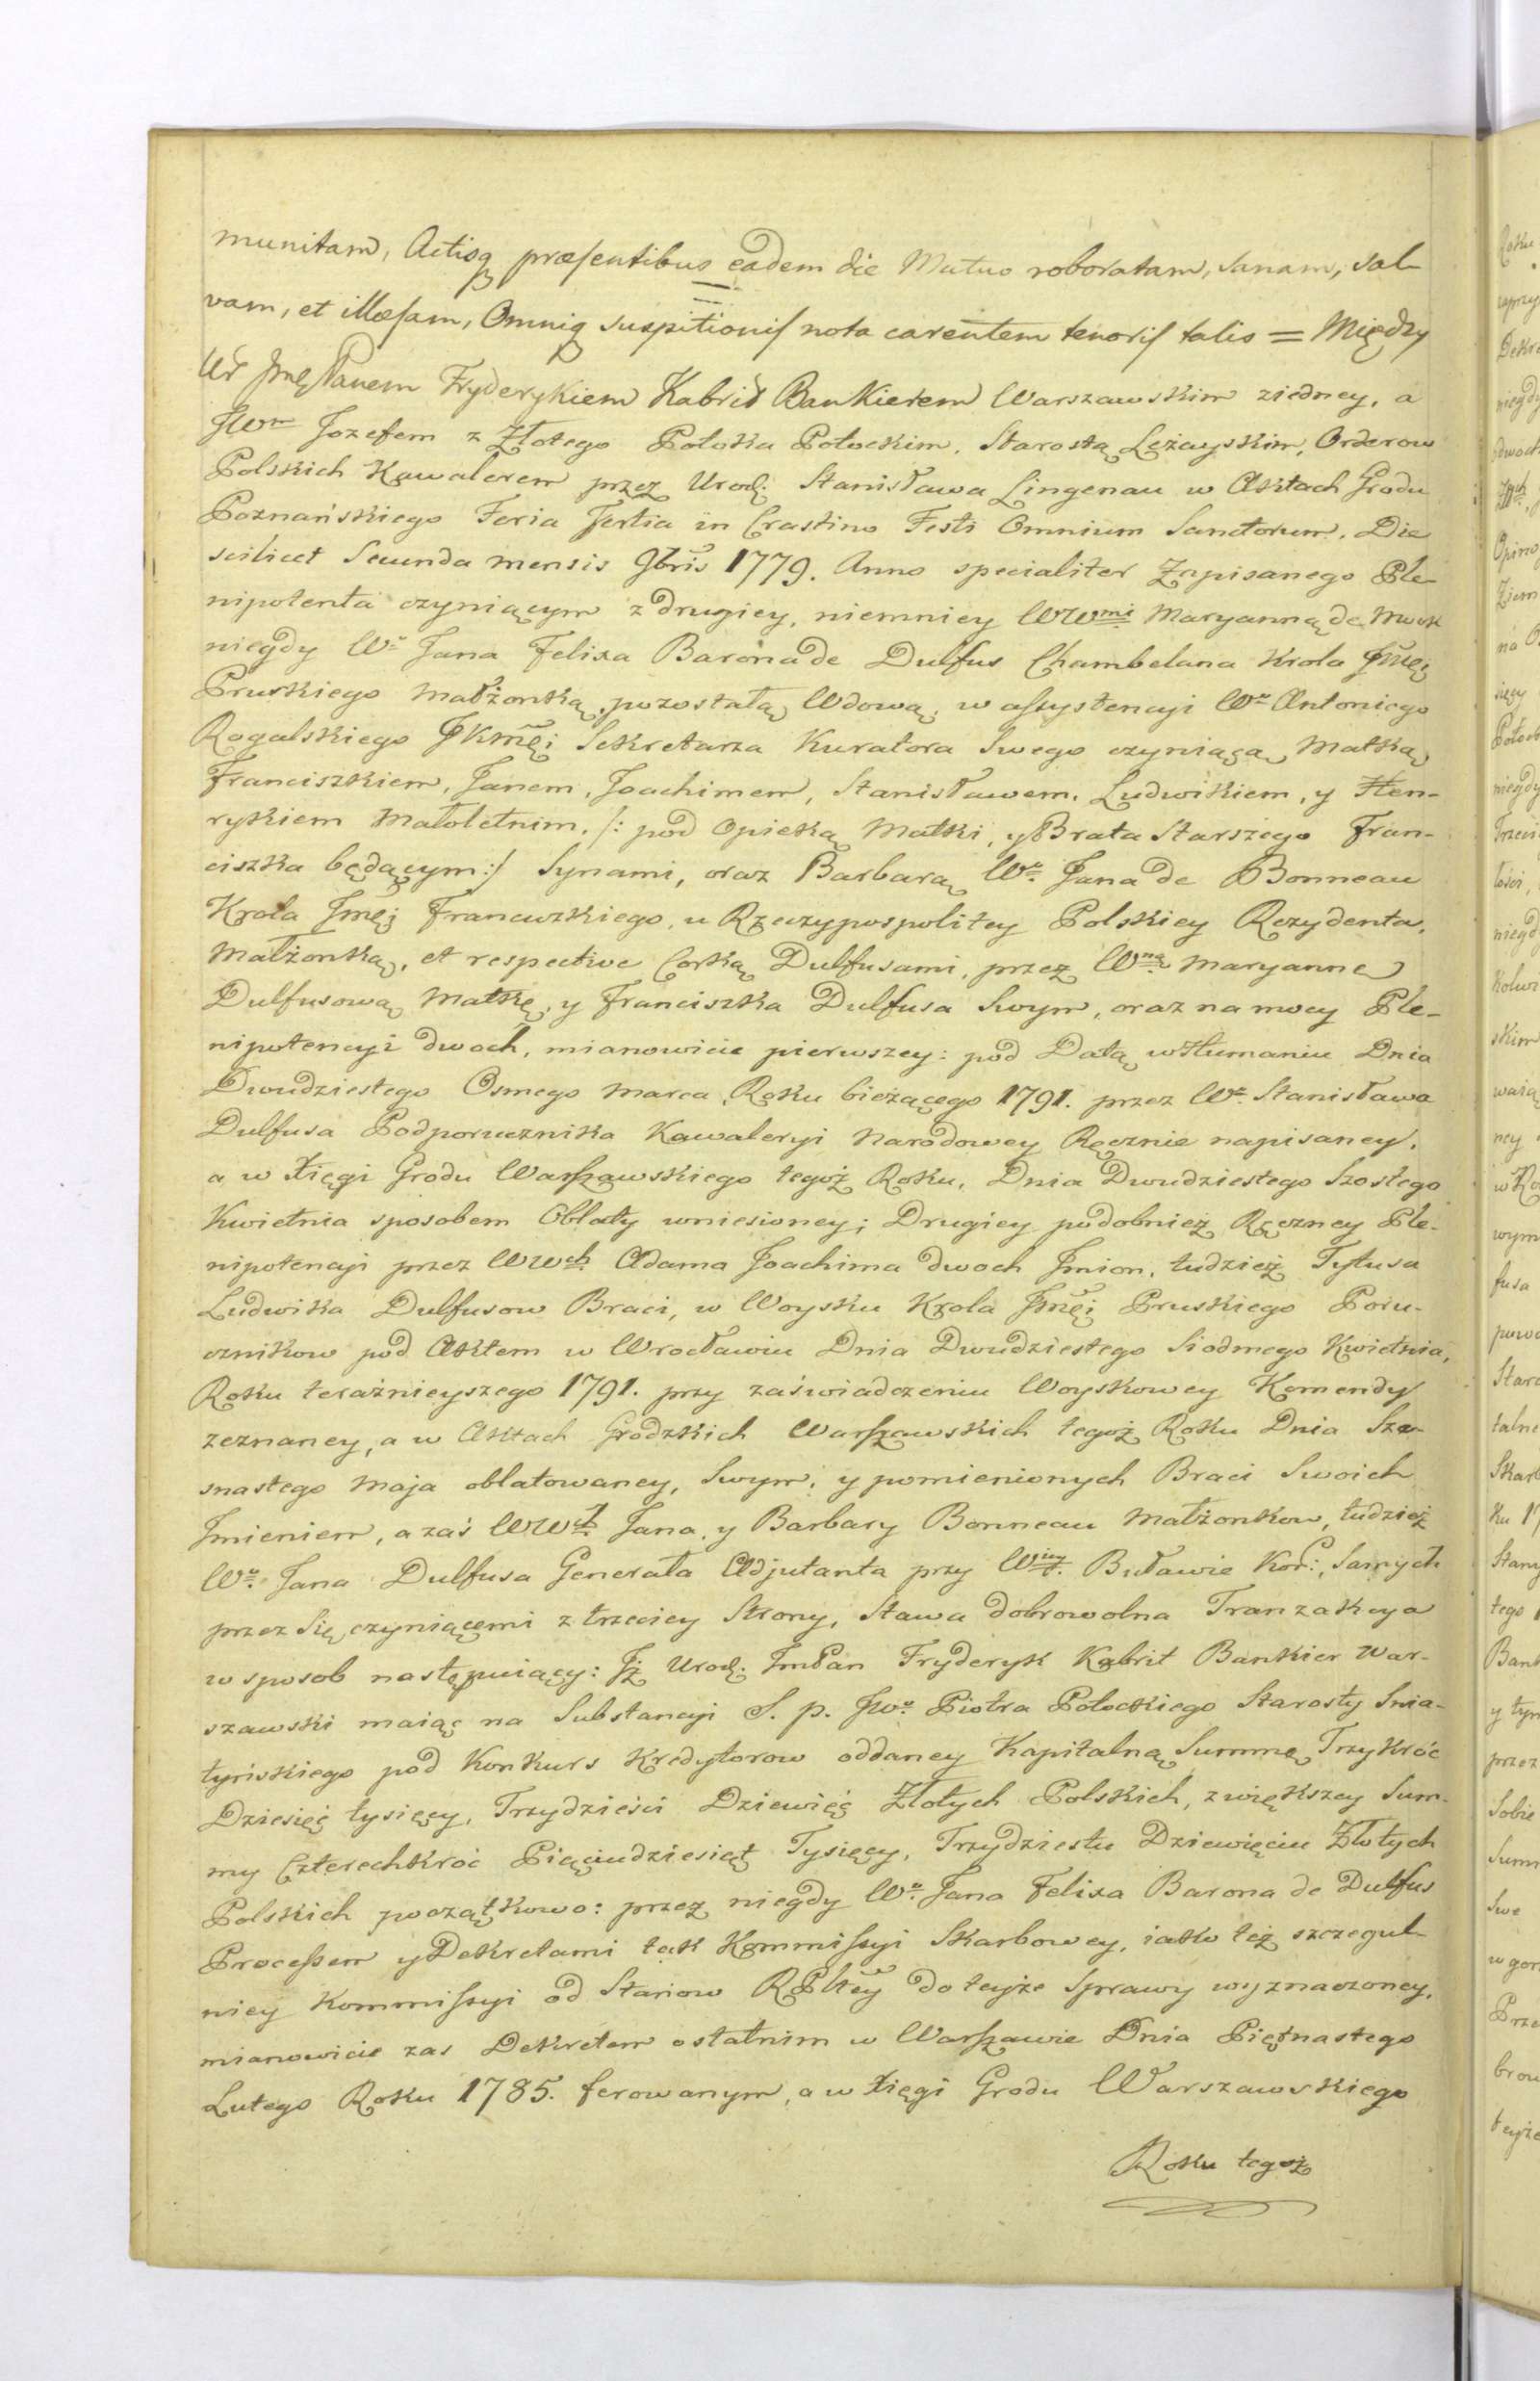 munitam, Actisq præsentibus eadem die Mutuo roboratam, sanam, sal-
vam, et illæsam, Omniq suspitionis nota carentem tenoris talis = Między
Ur Jmę Panem Fryderykiem Kabrit Bankierem Warszawskim ziedney, a
JWm Jozefem z Złotego Potoka Potockim, Starostą Leżayskim, Orderow
Polskich Kawalerem przez Urodz: Stanisława Lingenau w Aktach Grodu
Poznańskiego Feria Tertia in Crastino Festi Omnium Sanctorum, Die
scilicet Secunda mensis 9bris 1779. Anno specialiter Zapisanego Ple-
nipotenta czyniącym z drugiey, niemniey WWmi Maryanną de
niegdy Wo Jana Felixa Barona de Dulfus Chambelana Krola Jmęi
Pruskiego małżonką, pozostałą Wdową, w assystencyi Wo Antoniego
Rogalskiego JKmęi Sekretarza Kuratora Swego czyniącą, Matką,
Franciszkiem, Janem, Joachimem, Stanisławem, Ludwikiem, y Hen-
rykiem Małoletnim, /: pod Opieką Matki, y Brata Starszego Fran-
ciszka będącym :/ Synami, oraz Barbarą Wo Jana de Bonneau
Krola Jmęi Francuzkiego, u Rzeczypospolitey Polskiey Rezydenta,
Małżonką, et respective Corką Dulfusami, przez Wną Maryannę
Dulfusową Matkę, y Franciszka Dulfusa Swym, oraz na mocy Ple-
nipotencyi dwoch, mianowicie pierwszey: pod Datą w Humaniu Dnia
Dwudziestego Osmego Marca, Roku bieżącego 1791. przez Wo Stanisława
Dulfusa Podporucznika Kawaleryi Narodowey Ręcznie napisaney,
a w Xięgi Grodu Warszawskiego tegoż Roku, Dnia Dwudziestego Szostego
Kwietnia sposobem Oblaty wniesioney; Drugiey podobnież Ręczney Ple-
nipotencyi przez WWch Adama Joachima dwoch Jmion, tudzież Tytusa
Ludwika Dulfusow Braci, w Woysku Krola Jmęi Pruskiego Poru-
cznikow pod Aktem w Wrocławiu Dnia Dwudziestego Siodmego Kwietnia,
Roku teraźnieyszego 1791. przy zaświadczeniu Woyskowey Komendy
zeznaney, a w Aktach Grodzkich Warszawskich tegoż Roku Dnia Sze-
snastego Maja oblatowaney, Swym, y pomienionych Braci Swoich
Jmieniem, a zaś WWch Jana, y Barbary Bonneau Małżonkow, tudzież
Wo Jana Dulfusa Generała Adjutanta przy Wiey Buławie Kor:, Samych
przez Się czyniącemi z trzeciey Strony, Stawa dobrowolna Tranzakcya
w sposob następuiący: Jż Urodz: JmPan Fryderyk Kabrit Bankier War-
szawski maiąc na Substancyi S. p. JWo Piotra Potockiego Starosty Snia-
tyńskiego pod Konkurs Kredytorow oddaney Kapitalną Summę Trzykróć
Dziesięć tysięcy, Trzydzieści Dziewięć Złotych Polskich, z większey Sum-
my Czterechkroć Pięciudziesiąt Tysięcy, Trzydziestu Dziewięciu Złotych
Polskich początkowo: przez niegdy Wo Jana Felixa Barona de Dulfus
Processem y Dekretami tak Kommissyi Skarbowey, iako też szczegul-
niey Kommissyi od Stanow RPltey do teyże Sprawy wyznaczoney,
mianowicie zas Dekretem ostatnim w Warszawie Dnia Piętnastego
Lutego Roku 1785. ferowanym, a w Xięgi Grodu Warszawskiego
Roku tegoż